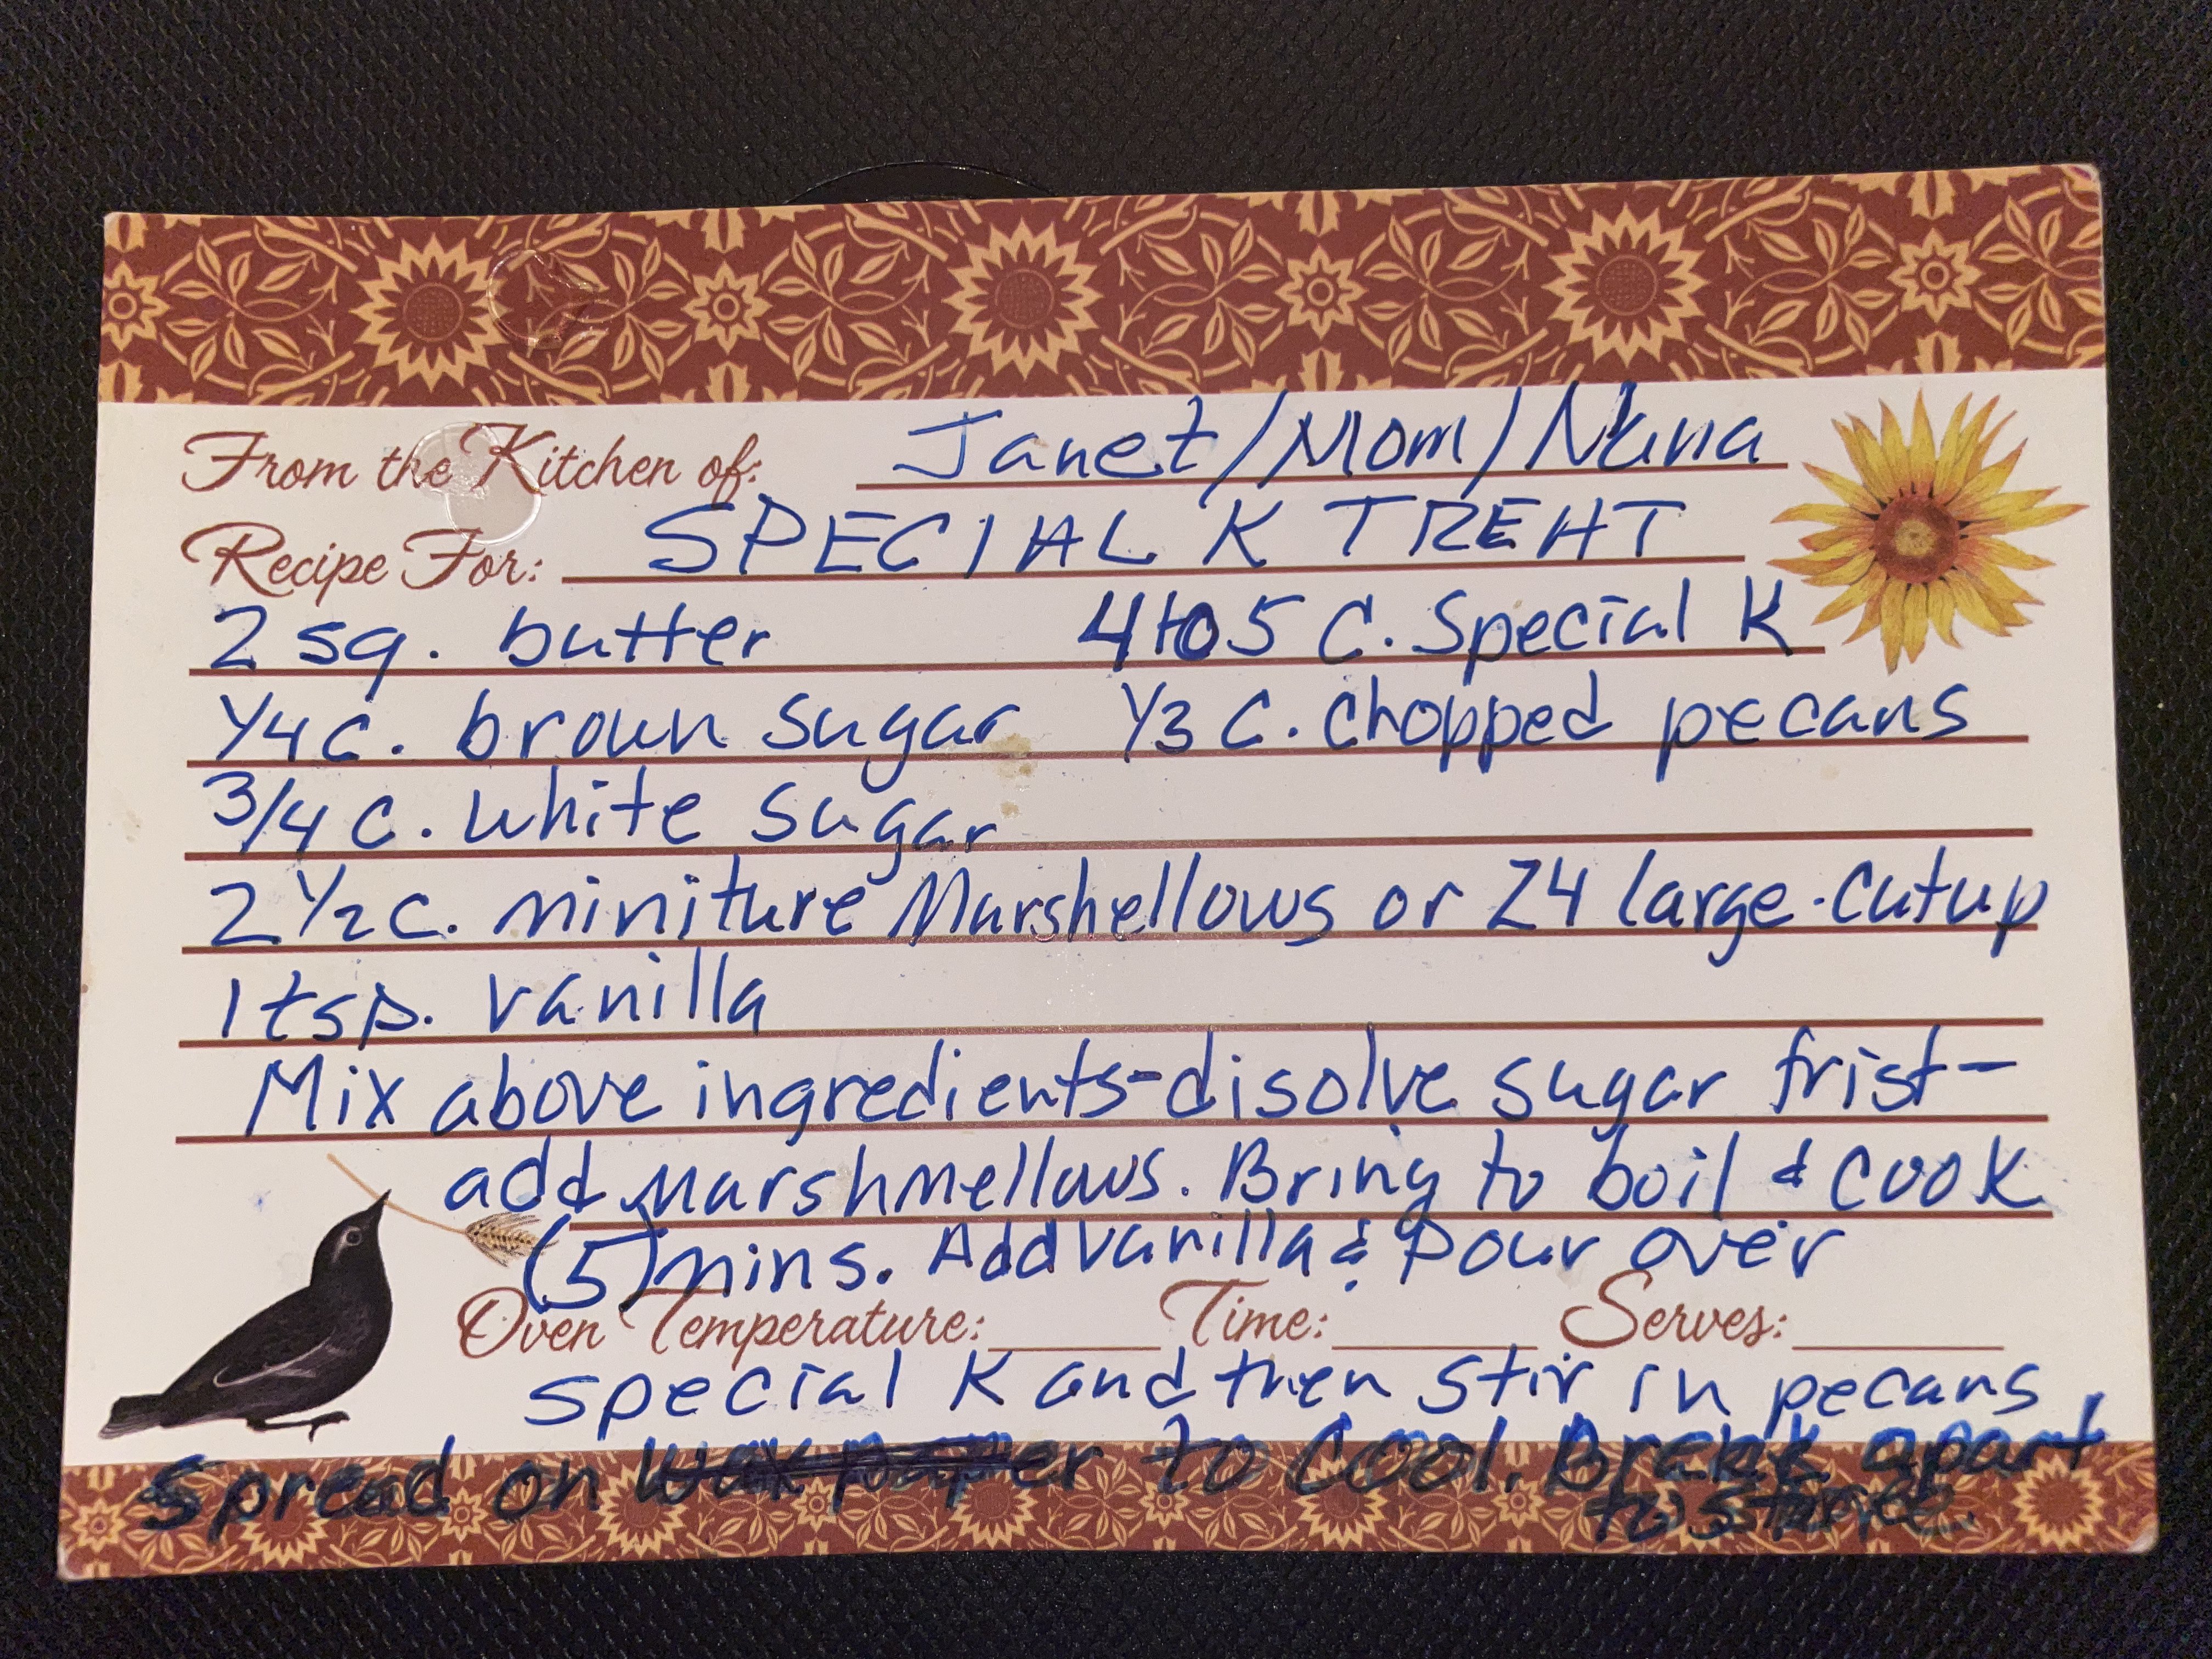 From the Kitchen of: Janet/Mom/Nana
Recipe For: SPECIAL K TREAT
2 sq. butter 4 to 5 C. Special K
1/4 c. brown sugar 1/3 C. chopped pecans
3/4 c. white sugar
2 1/2 c. miniture Marshellows or 24 large-cut up
1 tsp. vanilla
Mix above ingredients-disolve sugar frist-
add marshmellows. Bring to boil & cook
(5) mins. Add vanilla & pour over
Oven Temperature: Time: Serves:
special K and then stir in pecans,
Spread on wax paper to cool. Break apart
to store.